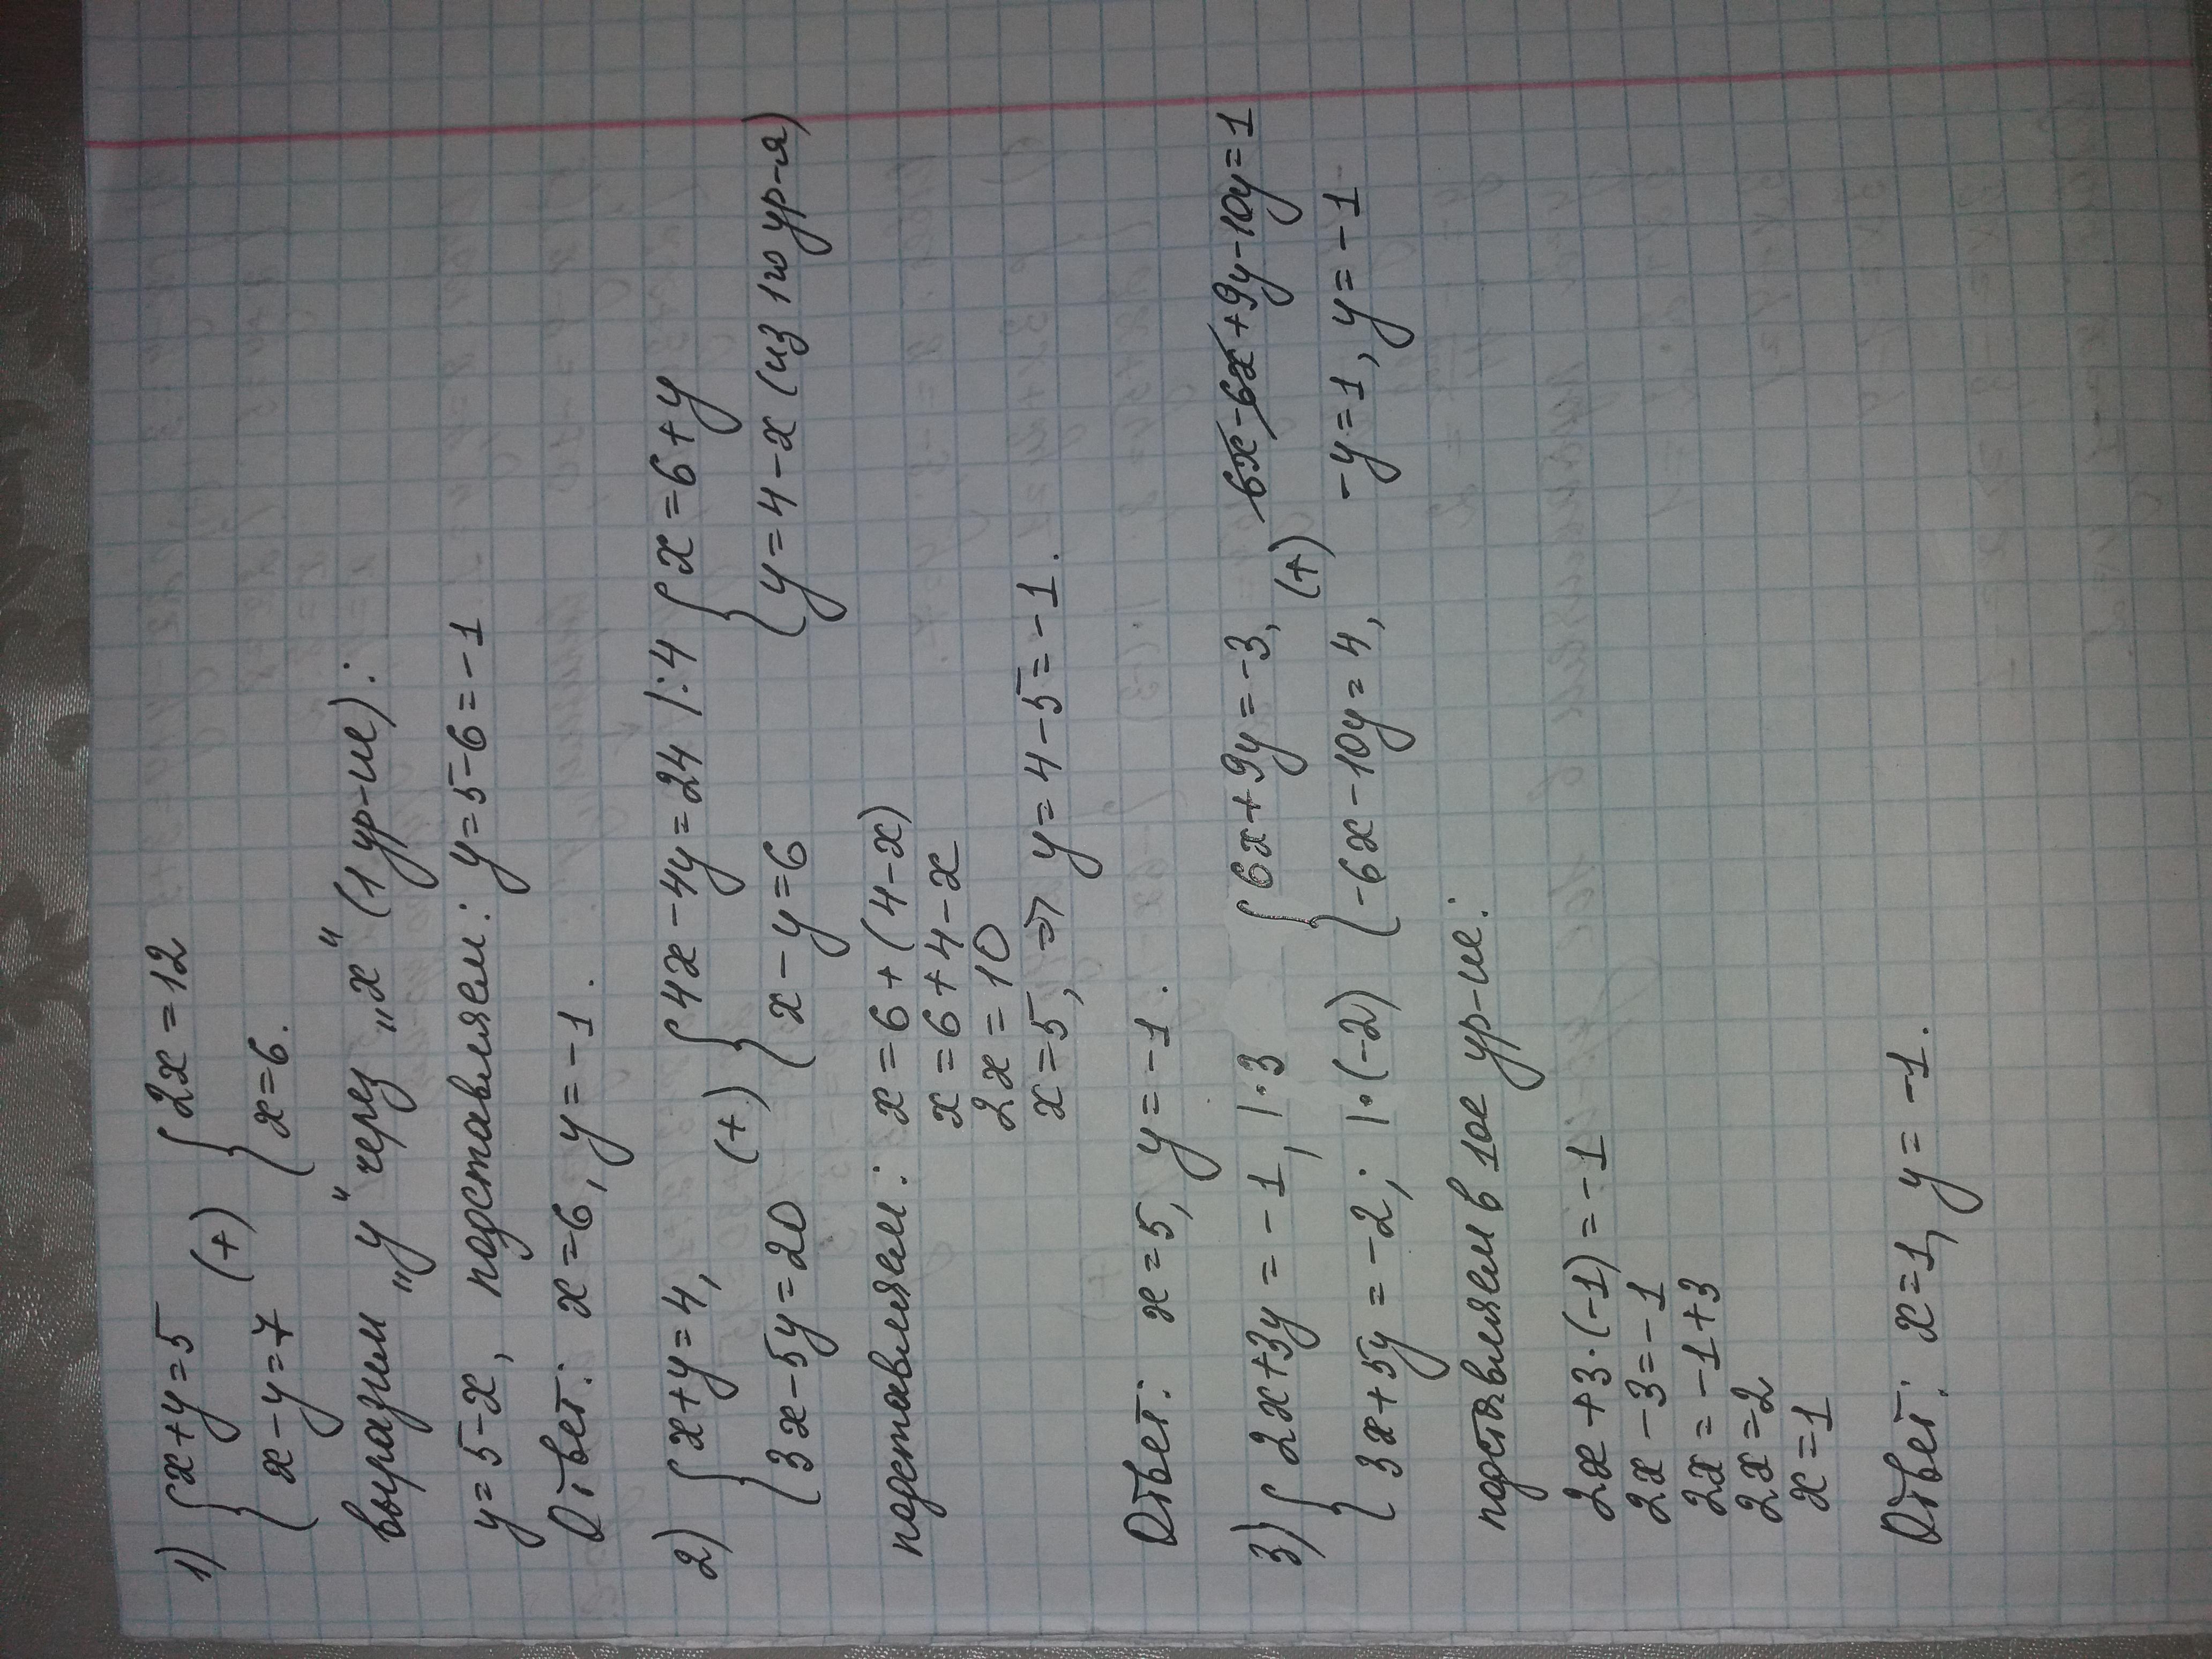 1) { x+y=5 (+) { 2x=12
{ x-y=7 { x=6.
выразим „y" через „x" (1 ур-ие):
y=5-x, подставляем: y=5-6=-1
Ответ: x=6, y=-1.
2) { x+y=4, (+) { 4x-4y=24 |:4 { x=6+y
{ 3x-5y=20 { x-y=6 { y=4-x (из 1го ур-я)
подставляем: x=6+(4-x)
x=6+4-x
2x=10
x=5, => y=4-5=-1.
Ответ: x=5, y=-1.
3) { 2x+3y=-1, |·3 { 6x+9y=-3, (+) 6x-6x+9y-10y=1
{ 3x+5y=-2; |·(-2) { -6x-10y=4, -y=1, y=-1
подставляем в 1ое ур-ие:
2x+3·(-1)=-1
2x-3=-1
2x=-1+3
2x=2
x=1
Ответ: x=1, y=-1.